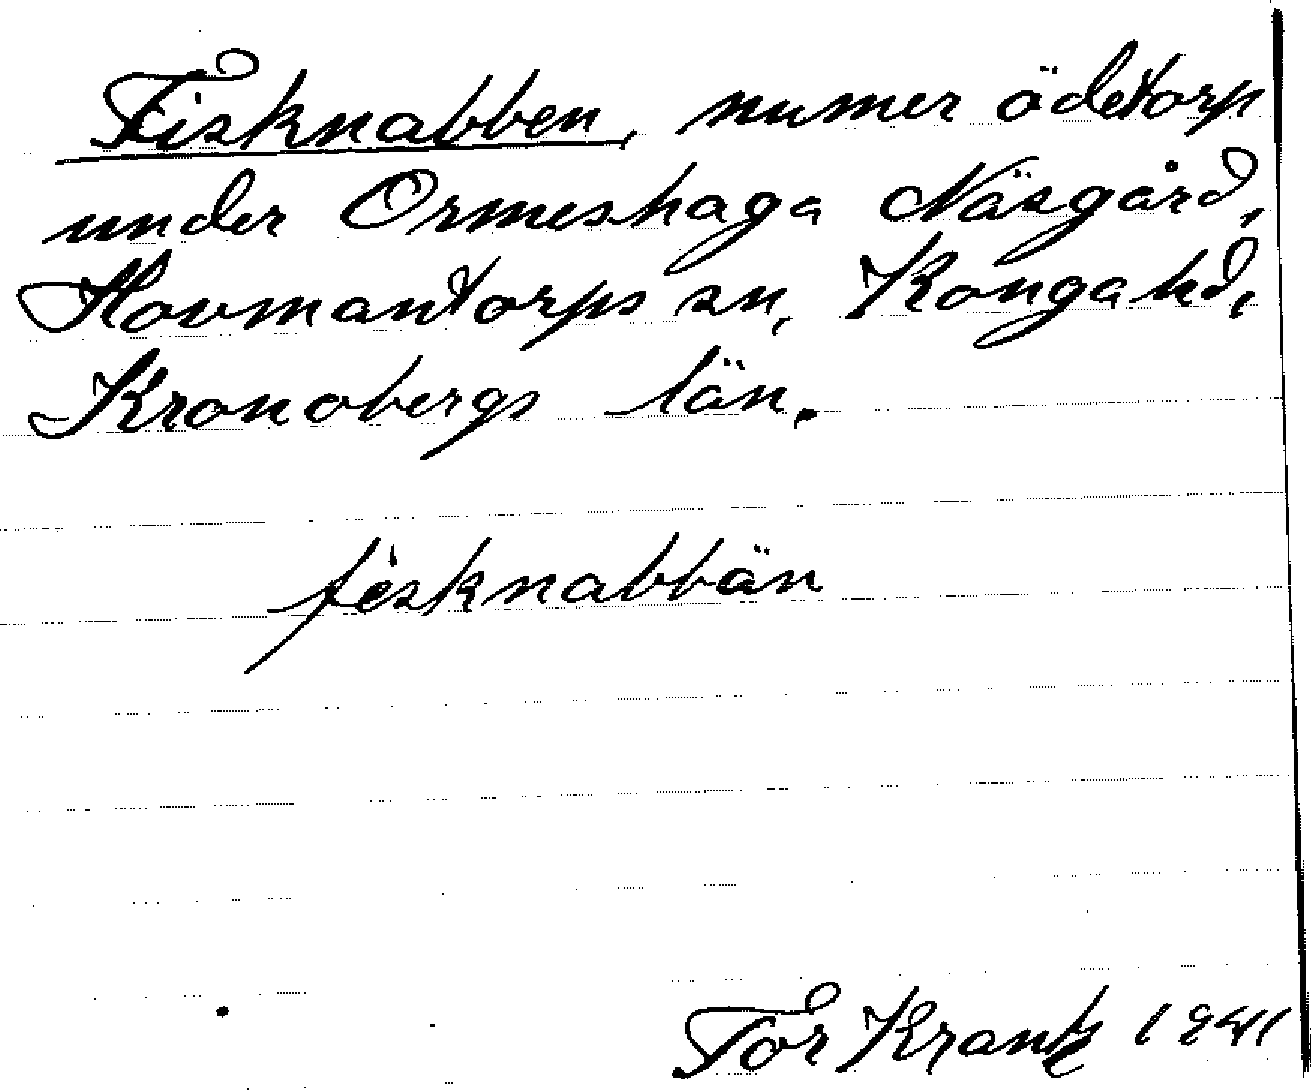 Fisknabben, numer ödetorp
under Ormeshaga Näsgård,
Hovmantorps sn, Konga hd,
Kronobergs län.
fèsknabbän
Tor Krantz 1941